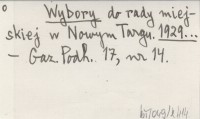 Wybory do rady miej-
skiej w Nowym Targu. 1929...
– Gaz. Podh. 17, nr 14.